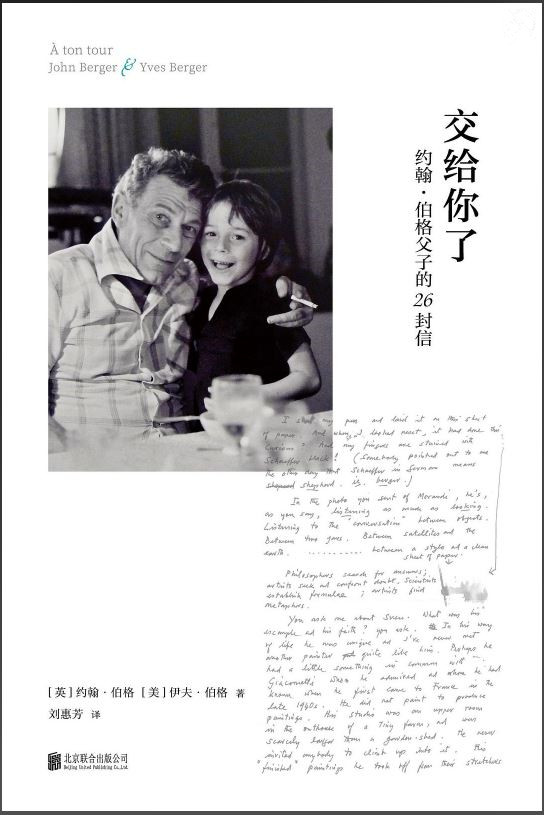 À ton tour
John Berger & Yves Berger
交给你了
约翰·伯格父子的26封信
I shut my pen and laid it on this sheet
of paper. And when I looked next, it had done this
And my fingers are stained with
Schaeffer black! (Somebody pointed out to me
the other day that Schaeffer in German means
shepherd. berger.)
In the photo you sent of Morandi, he's,
as you say, listening as much as looking.
Listening to the "conversation" between objects.
Between two jars. Between satellites and the
earth. between a style and a clean
sheet of paper.
Philosophers search for answers;
artists seek and confront doubt. Scientists
establish formulae; artists find
metaphors.
You ask me about Sven. What was his
example and his faith? you ask. In his way
of life he was unique and I've never met
another painter quite like him. Perhaps he
had a little something in common with
Giacometti whom he admired and whom he had
known when he first came to France in the
late 1940s. He did not paint to produce
paintings. His studio was an upper room
in the outhouse of a tiny farm, and was
scarcely larger than a garden-shed. He never
invited anybody to climb up into it. His
"finished" paintings he took off from their stretchers
[英]约翰·伯格 [美]伊夫·伯格 著
刘惠芳 译
北京联合出版公司
Beijing United Publishing Co.,Ltd.